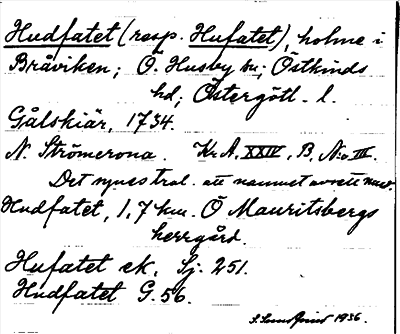 Hudfatet (resp. Hufatet), holme i
Bråviken; Ö. Husby sn; Östkinds
hd; Östergötl. l.
Gålskiär, 1734.
N. Strömerona. Kr. A. XXIV, B, No III.
Det synes trol. att namnet avsett nuv.
Hudfatet, 1,7 km. Ö Mauritsbergs
herrgård.
Hufatet ek. Sj. 251.
Hudfatet G. 56.
1936.